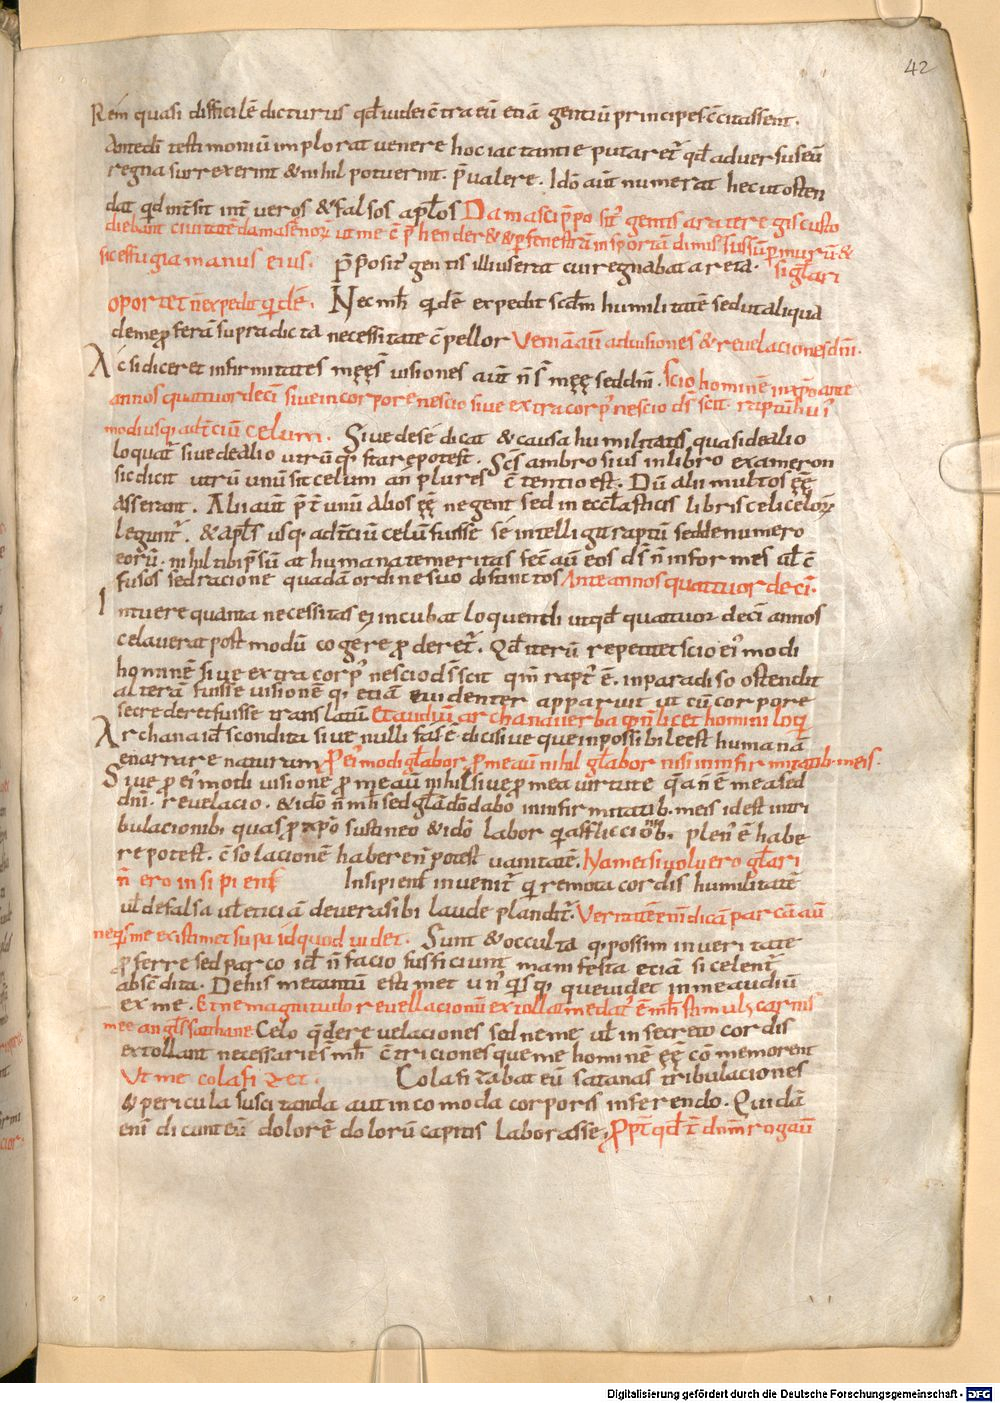 42
Rem quasi difficilē dicturus qđ iudei c̄tra eū etiā gentiū principes c̄citassent.
Ante dm̄ testimoniū implorat ue nere hoc iactantie putaret̄ qđ aduersus eū
regna surrexerint & nihil potuerint. p̄ualere. Idō aūt numerat hec ut osten
dat qđ int̄sit int̄ ueros & falsos ap̄los Damasci p̄posit᷒ gentis arat ere gis custo
diebant ciuitatē damascenoꝝ ut me c̄p̄henderet & ꝑ fenestrā in sporta dimissus sū ꝑ murū &
sic effugi a manus eius. P̄posit᷒ gentis illius erat cui regnabat areta. si gl̄ari
oportet n̄ expedit qidē. Nec mħ qidē expedit scd̄m humilitatē sed ut aliqua
de me ꝓferā supra dicta necessitate c̄pellor Veniā aū ad uisiones & reuelaciones dn̄i.
Ac si diceret infirmitates męę s̄ uisiones aūt n̄ s̄ męę sed dn̄i. Scio hominē in xp̄o ante
annos quatuordeci᷒ siue in corpore nescio siue extra corp᷒ nescio ds̄ scit. raptū hui᷒
modi usq; ad t̄ciū celum. Siue de se dicat & causa humilitatis quasi de alio
loquat̄ siue de alio utrū q; stare potest. Sc̄s ambrosius in libro exameron
sic dicit utrū unū sit celum an plures c̄tentio est. Dū alii multos ęę
asserant. Alii aūt p̄t̄ unū alios ęę negent sed in ecclēasticis libris celi celoꝝ
legunt̄. & apl̄s usq; ad t̄ciū celū fuisse se intelligit raptū sed de numero
eorū. nihil tibi p̄sūat humana temeritas fec̄ aū eos ds̄ n̄ informes ul̄ c̄
fusos sed racione quadā ordine suo distinctos Ante annos quattuordeci᷒.
Intuere quanta necessitas ei incubat loquendi ut qđ quatuordeci᷒ annos
celauerat postmodū cogere ꝓderet̄. Qđ iterū repetitet scio ei᷒modi
hominē siue extra corp᷒ nescio ds̄ scit qm̄ rapt᷒ ē. in paradiso ostendit
alterā fuisse uisionē q; etiā euidenter apparuit ut cū corpore
se crederet fuisse translatū Et audiuit archana uerba q̄ n̄ licet homini loqi
Archana id s̄ scondita siue nulli fas ē dici siue que inpossibile est humanā
enarrare naturam P ei᷒modi gl̄abor ꝓ me aū nihil gl̄abor nisi in infirmitatib; meis.
Siue ꝓ ei᷒modi uisione ꝓ me aū nihil siue ꝓ mea uirtute q̄ an̄ ē mea sed
dn̄i. reuelacio. & idō n̄ mħ sed gl̄ā dō dabo in infirmitatib; meis id est in tri
bulacionib; quas ꝓ xp̄o sustineo & idō labor q; afflicciōīb; plen᷒ ē habe
re potest. c̄solacionē habere n̄ potest uanitatē. Nam et si uoluero gl̄ari
n̄ ero insipiens Insipiens inuenit̄ qi remota cordis humilitatē
ul̄ de falsa ul̄ eticiā de uera sibi laude plandit̄. Veritatē eni᷒ dicā parcā aū
ne qs me existimet supra id quod uidet. Sunt & occulta q; possim in ueritate
ꝓferre sed parco id n̄ facio sufficiunt manifesta etiā si celent̄
abscdita. De his me tantū estimet un᷒ qsq; que uidet in me audiū
ex me. Et ne magnitudo reuelacionū extollat me dat᷒ ē mħ stimuls carnis
mee angls satthane Celo q̄dere uelaciones sed ne me ul̄ in secreto cordis
extollant necessaries mħ c̄triciones que me hominē ęę cōmemorent
Vt me colafizet. Colafizabat eū satanas tribulaciones
& pericula suscitanda aut incomoda corporis inferendo. Quidā
enī dicunt eū dolorē dolorū capitis laborasse. Ꝓpt̄ qđ t̄ dnm̄ rogaui
Digitalisierung gefördert durch die Deutsche Forschungsgemeinschaft - DFG